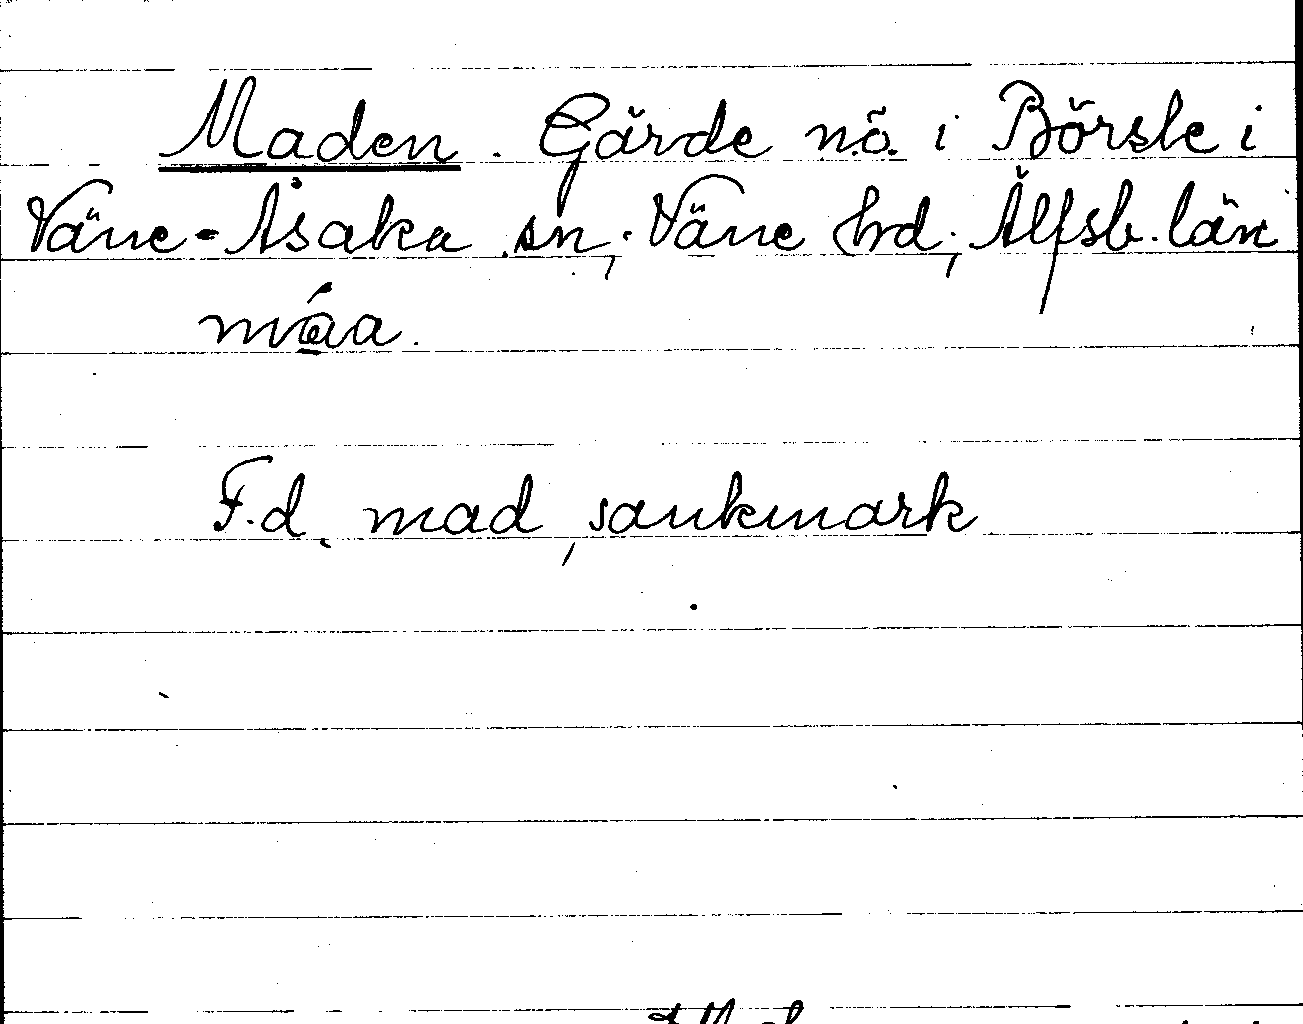 Maden. Gärde nö. i Börsle i
Väne-Åsaka sn, Väne hrd, Älfsb. län
måa.
F.d. mad, sankmark